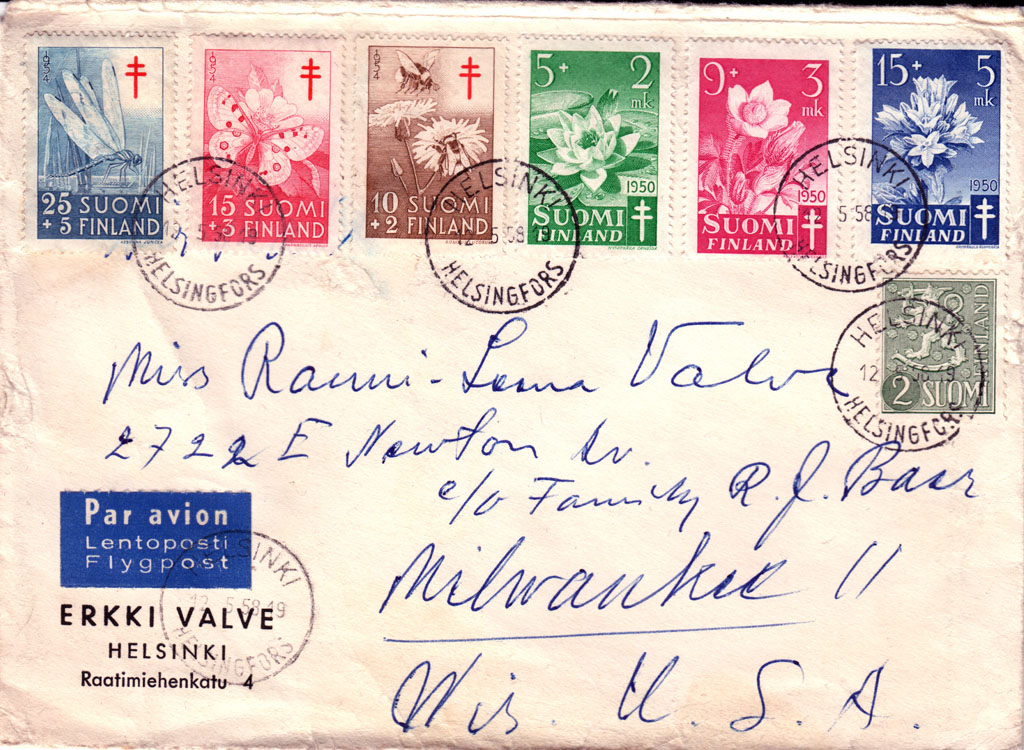 1954
25 SUOMI
+5 FINLAND
1954
15 SUOMI
+3 FINLAND
1954
10 SUOMI
+2 FINLAND
5+ 2
mk
1950
SUOMI
FINLAND
9+ 3
mk
1950
SUOMI
FINLAND
15+ 5
mk
1950
SUOMI
FINLAND
HELSINKI
HELSINGFORS
HELSINKI
12. 5.58.19
HELSINGFORS
HELSINKI
12. 5.58
HELSINGFORS
FINLAND
2 SUOMI
HELSINKI
12
19
HELSINGFORS
Miss Rauni-Leena Valve
2722 E Newton Av.
c/o Family R. J. Baar
Milwaukee 11
Wis. U. S. A.
Par avion
Lentoposti
Flygpost
HELSINKI
12. 5.58.19
HELSINGFORS
ERKKI VALVE
HELSINKI
Raatimiehenkatu 4